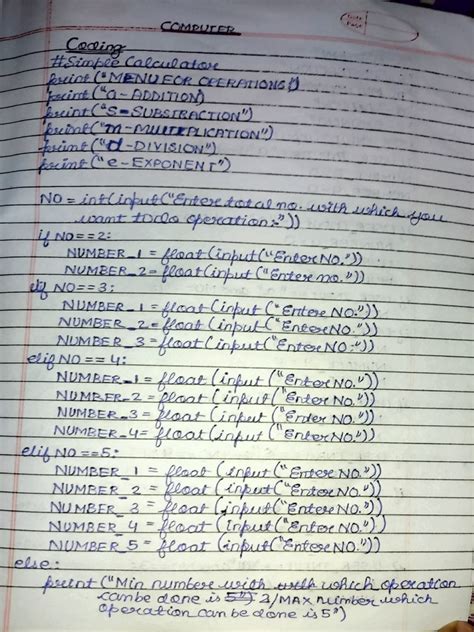 COMPUTER
Date
Page
Coding
#Simple Calculator
print("MENU FOR OPERATIONS")
print("a-ADDITION)
print("s-SUBSTRACTION")
print("m-MULTIPLICATION")
print("d-DIVISION")
print("e-EXPONENT")
NO = int(input("Enter total no. with which you
want to do operation:"))
if NO==2:
NUMBER_1 = float(input("Enter NO."))
NUMBER_2 = float(input("Enter no."))
elif NO==3:
NUMBER_1 = float(input("Enter NO."))
NUMBER_2 = float(input("Enter NO."))
NUMBER_3 = float(input("Enter NO."))
elif NO == 4:
NUMBER_1 = float(input("Enter NO."))
NUMBER_2 = float(input("Enter NO."))
NUMBER_3 = float(input("Enter NO."))
NUMBER_4 = float(input("Enter NO."))
elif NO==5:
NUMBER_1 = float(input("Enter NO."))
NUMBER_2 = float(input("Enter NO."))
NUMBER_3 = float(input("Enter NO."))
NUMBER_4 = float(input("Enter NO."))
NUMBER_5 = float(input("Enter NO."))
else:
print("Min number with which operation
can be done is 2/MAX number which
operation can be done is 5")